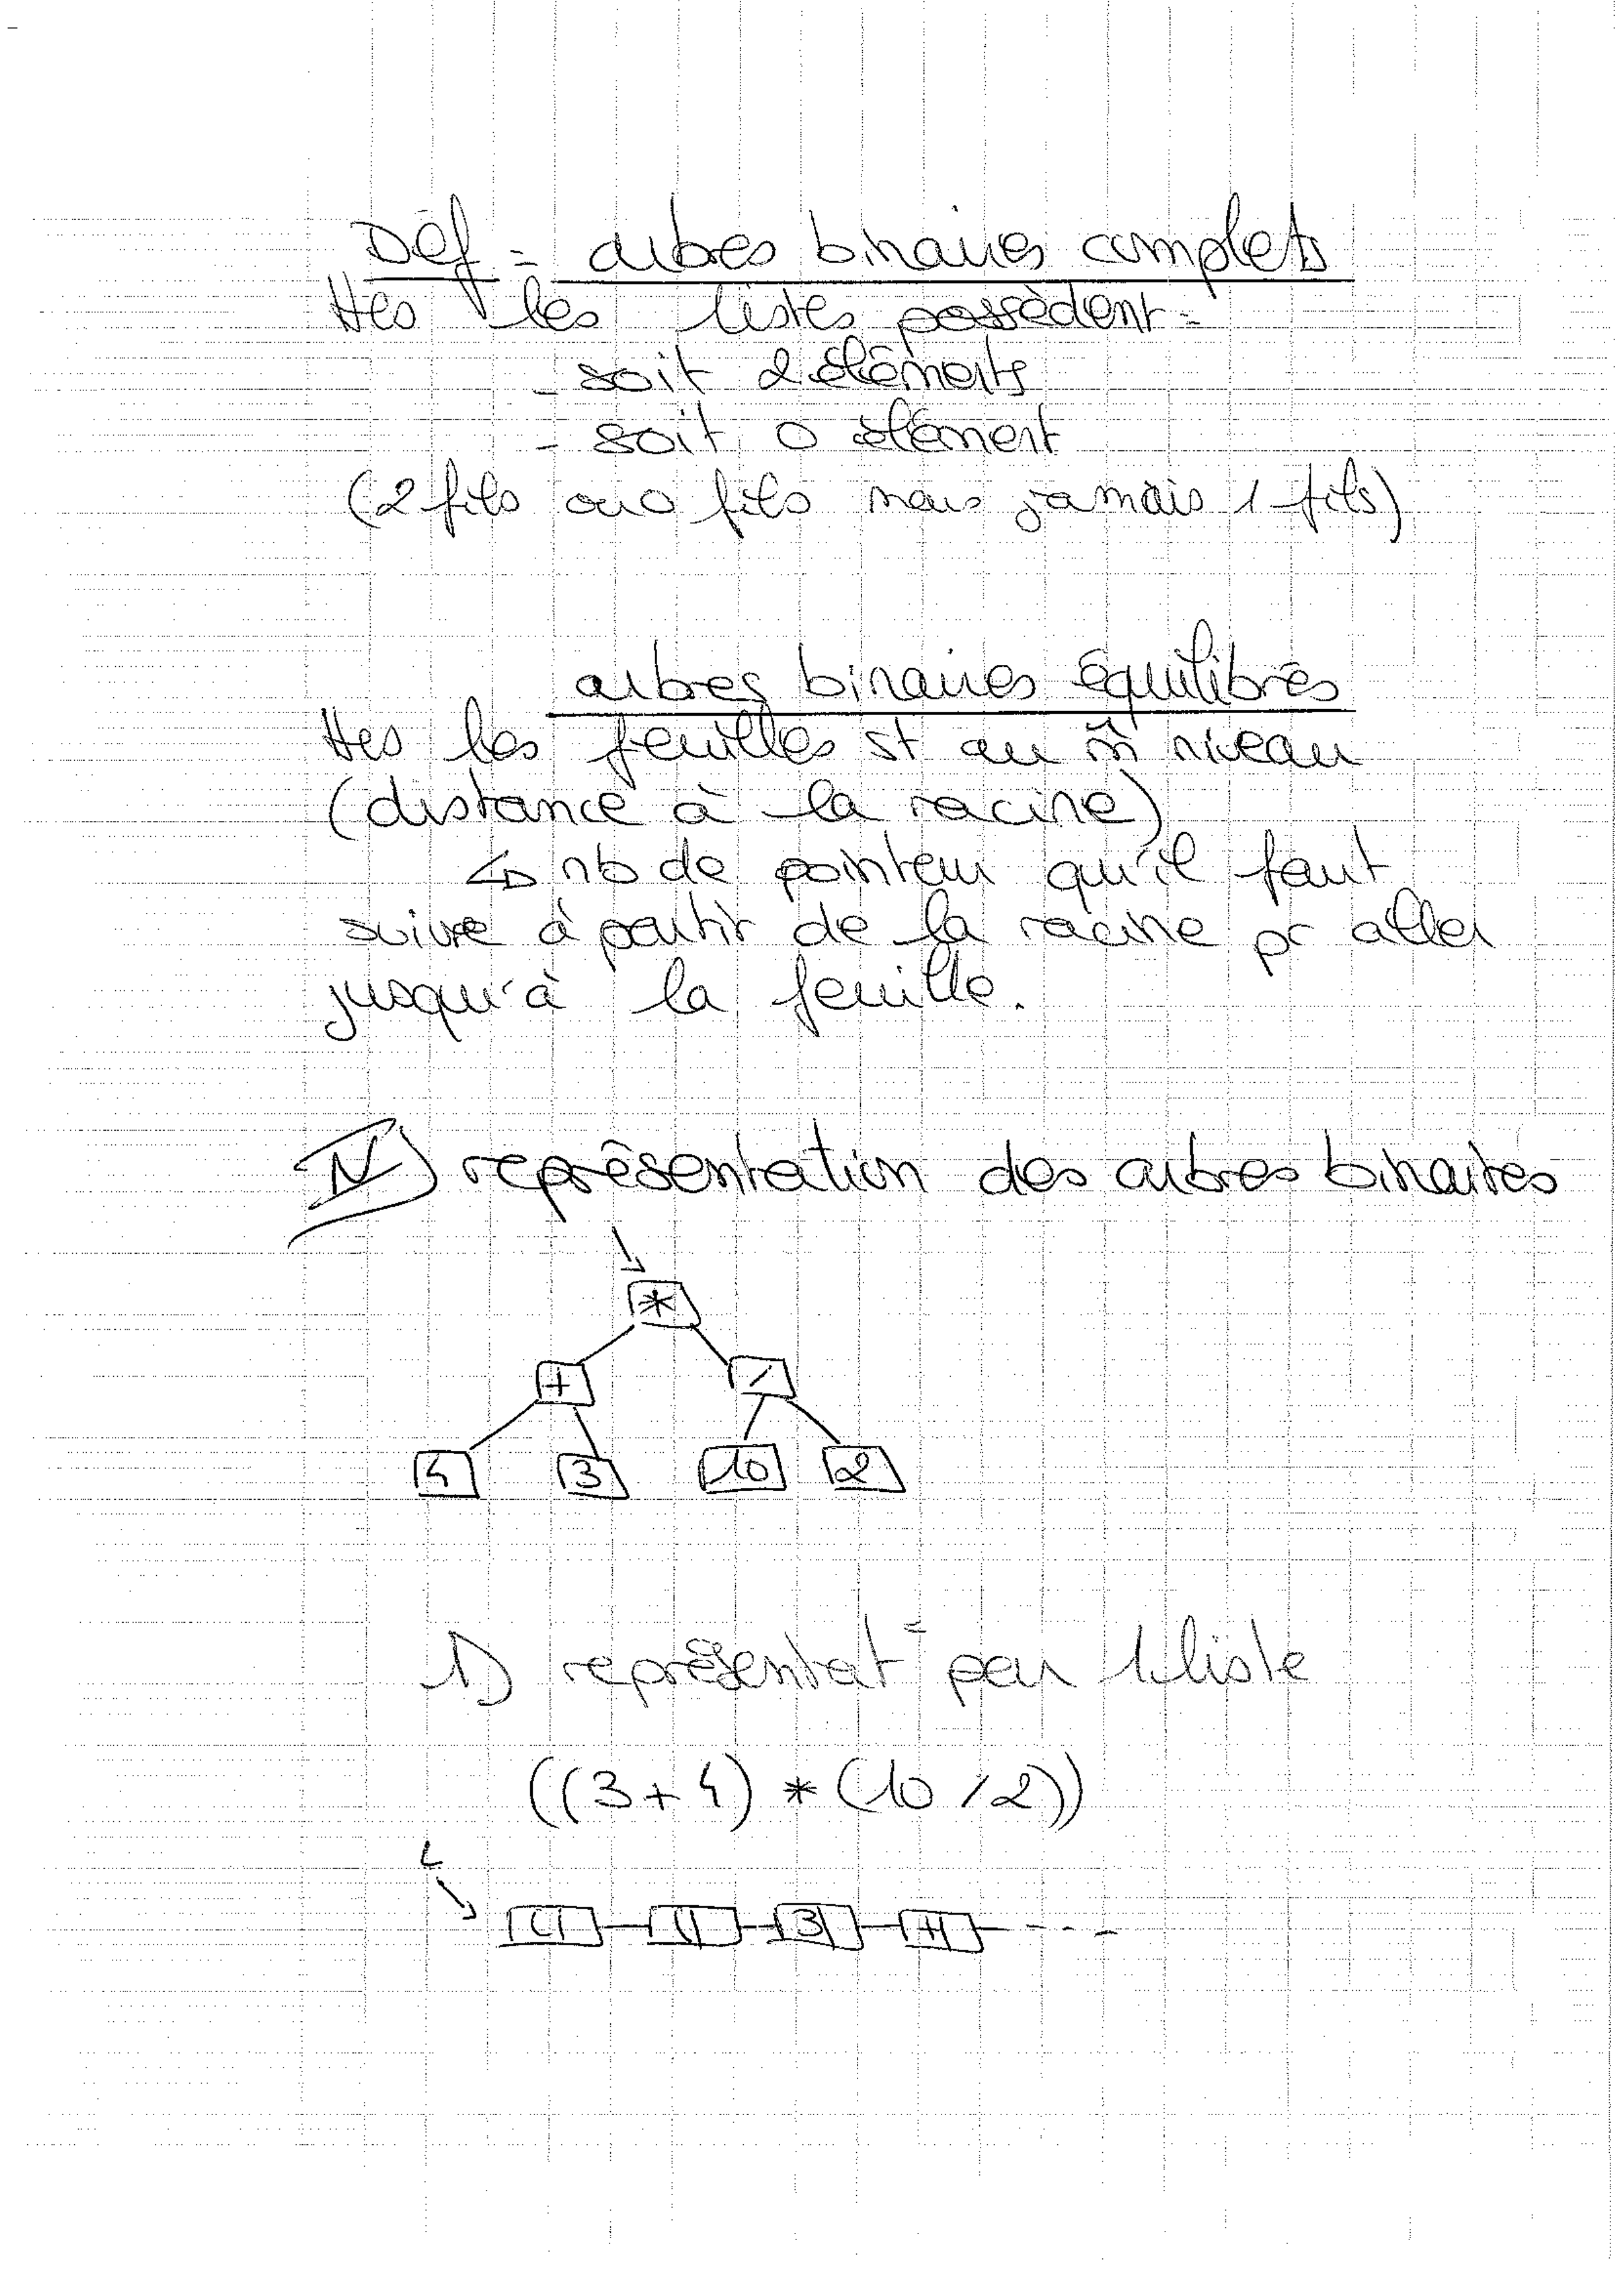 Déf = arbres binaires complets
ttes les listes possèdent =
- soit 2 éléments
- soit 0 élément
(2 fils ou 0 fils mais jamais 1 fils)
arbres binaires équilibrés
ttes les feuilles st au m̂ niveau
(distance à la racine)
↳ nb de pointeur qu'il faut
suivre à partir de la racine pr aller
jusqu'à la feuille.
IV) représentation des arbres binaires
*
+ /
4 3 10 2
1) représentat° par 1 liste
((3+4) * (10 / 2))
L
( ( 3 + - - -